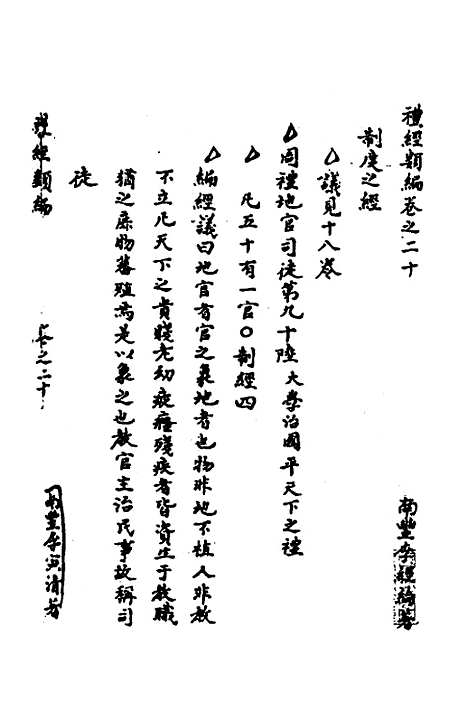 禮經類編卷之二十
南豐李經綸著
制度之經
議見十八卷
周禮地官司徒第九十陸 大學治國平天下之禮
凡五十有一官○制經四
編經議曰地官者官之象地者也物非地不植人非教
不立凡天下之貴賤老幼疲癃殘疾者皆資生于教職
猶之庶物蕃殖焉是以象之也教官主治民事故稱司
徒
禮經類編
卷之二十
南豐李
清芳